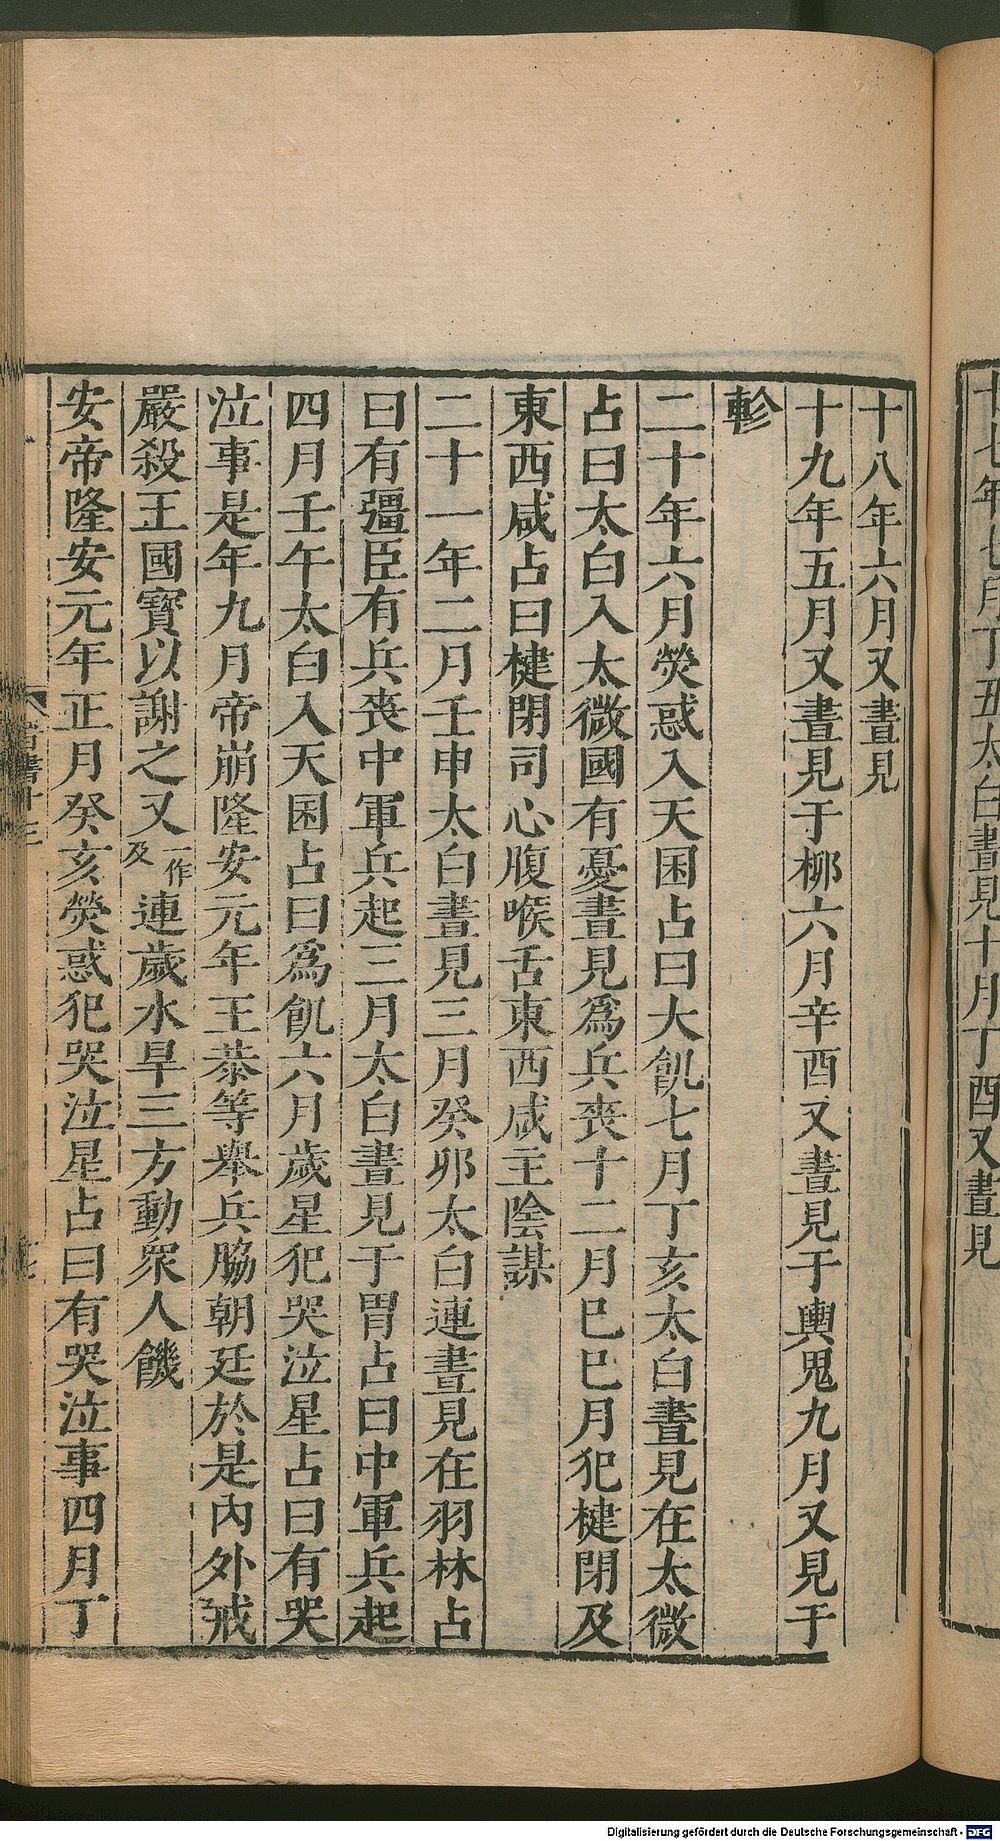 十七年七月丁丑太白晝見十月丁酉又晝見
十八年六月又晝見
十九年五月又晝見于柳六月辛酉又晝見于輿鬼九月又見于
軫
二十年六月熒惑入天囷占曰大飢七月丁亥太白晝見在太微
占曰太白入太微國有憂晝見爲兵喪十二月巳巳月犯楗閉及
東西咸占曰楗閉司心腹喉舌東西咸主陰謀
二十一年二月壬申太白晝見三月癸卯太白連晝見在羽林占
曰有彊臣有兵喪中軍兵起三月太白晝見于胃占曰中軍兵起
四月壬午太白入天囷占曰爲飢六月歲星犯哭泣星占曰有哭
泣事是年九月帝崩隆安元年王恭等舉兵脇朝廷於是內外戒
嚴殺王國寶以謝之又一作及連歲水旱三方動衆人饑
安帝隆安元年正月癸亥熒惑犯哭泣星占曰有哭泣事四月丁
晉書十三
Digitalisierung gefördert durch die Deutsche Forschungsgemeinschaft - DFG